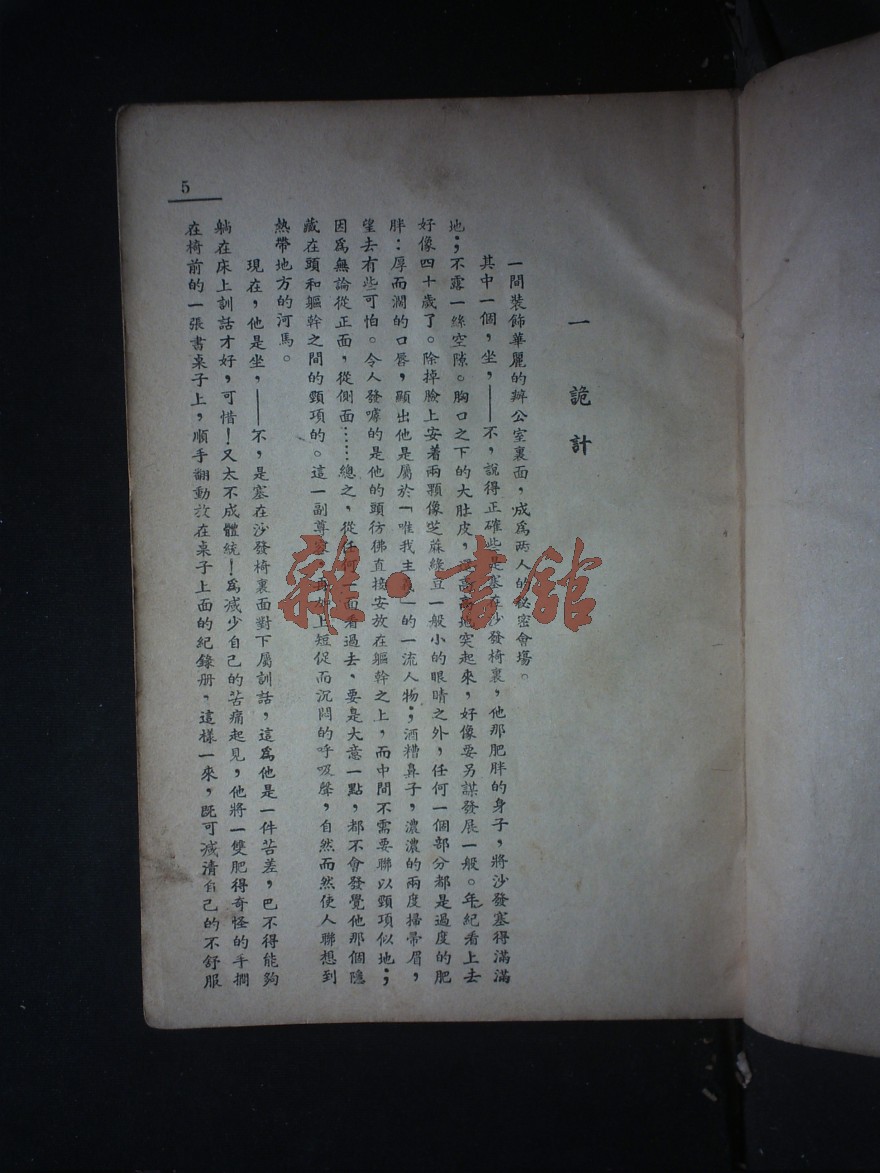 一 詭計
一間裝飾華麗的辦公室裏面，成爲兩人的秘密會場。
其中一個，坐，——不，說得正確些是塞在沙發椅裏，他那肥胖的身子，將沙發塞得滿滿
地；不露一絲空隙。胸口之下的大肚皮，高高地突起來，好像要另謀發展一般。年紀看上去
好像四十歲了。除掉臉上安着兩顆像芝蔴綠豆一般小的眼睛之外，任何一個部分都是過度的肥
胖：厚而濶的口唇，顯出他是屬於「唯我主義」的一流人物；酒糟鼻子，濃濃的兩度掃帚眉，
望去有些可怕。令人發噱的是他的頭彷彿直接安放在軀幹之上，而中間不需要聯以頸項似地；
因爲無論從正面，從側面……總之，從任何一面看過去，要是大意一點，都不會發覺他那個隱
藏在頭和軀幹之間的頸項的。這一副尊 上短促而沉悶的呼吸聲，自然而然使人聯想到
熱帶地方的河馬。
現在，他是坐，——不，是塞在沙發椅裏面對下屬訓話，這爲他是一件苦差，巴不得能夠
躺在床上訓話才好，可惜！又太不成體統！爲减少自己的苦痛起見，他將一雙肥得奇怪的手擱
在椅前的一張書桌子上，順手翻動放在桌子上面的紀錄册，這樣一來，既可减清自己的不舒服
5
雜·書館